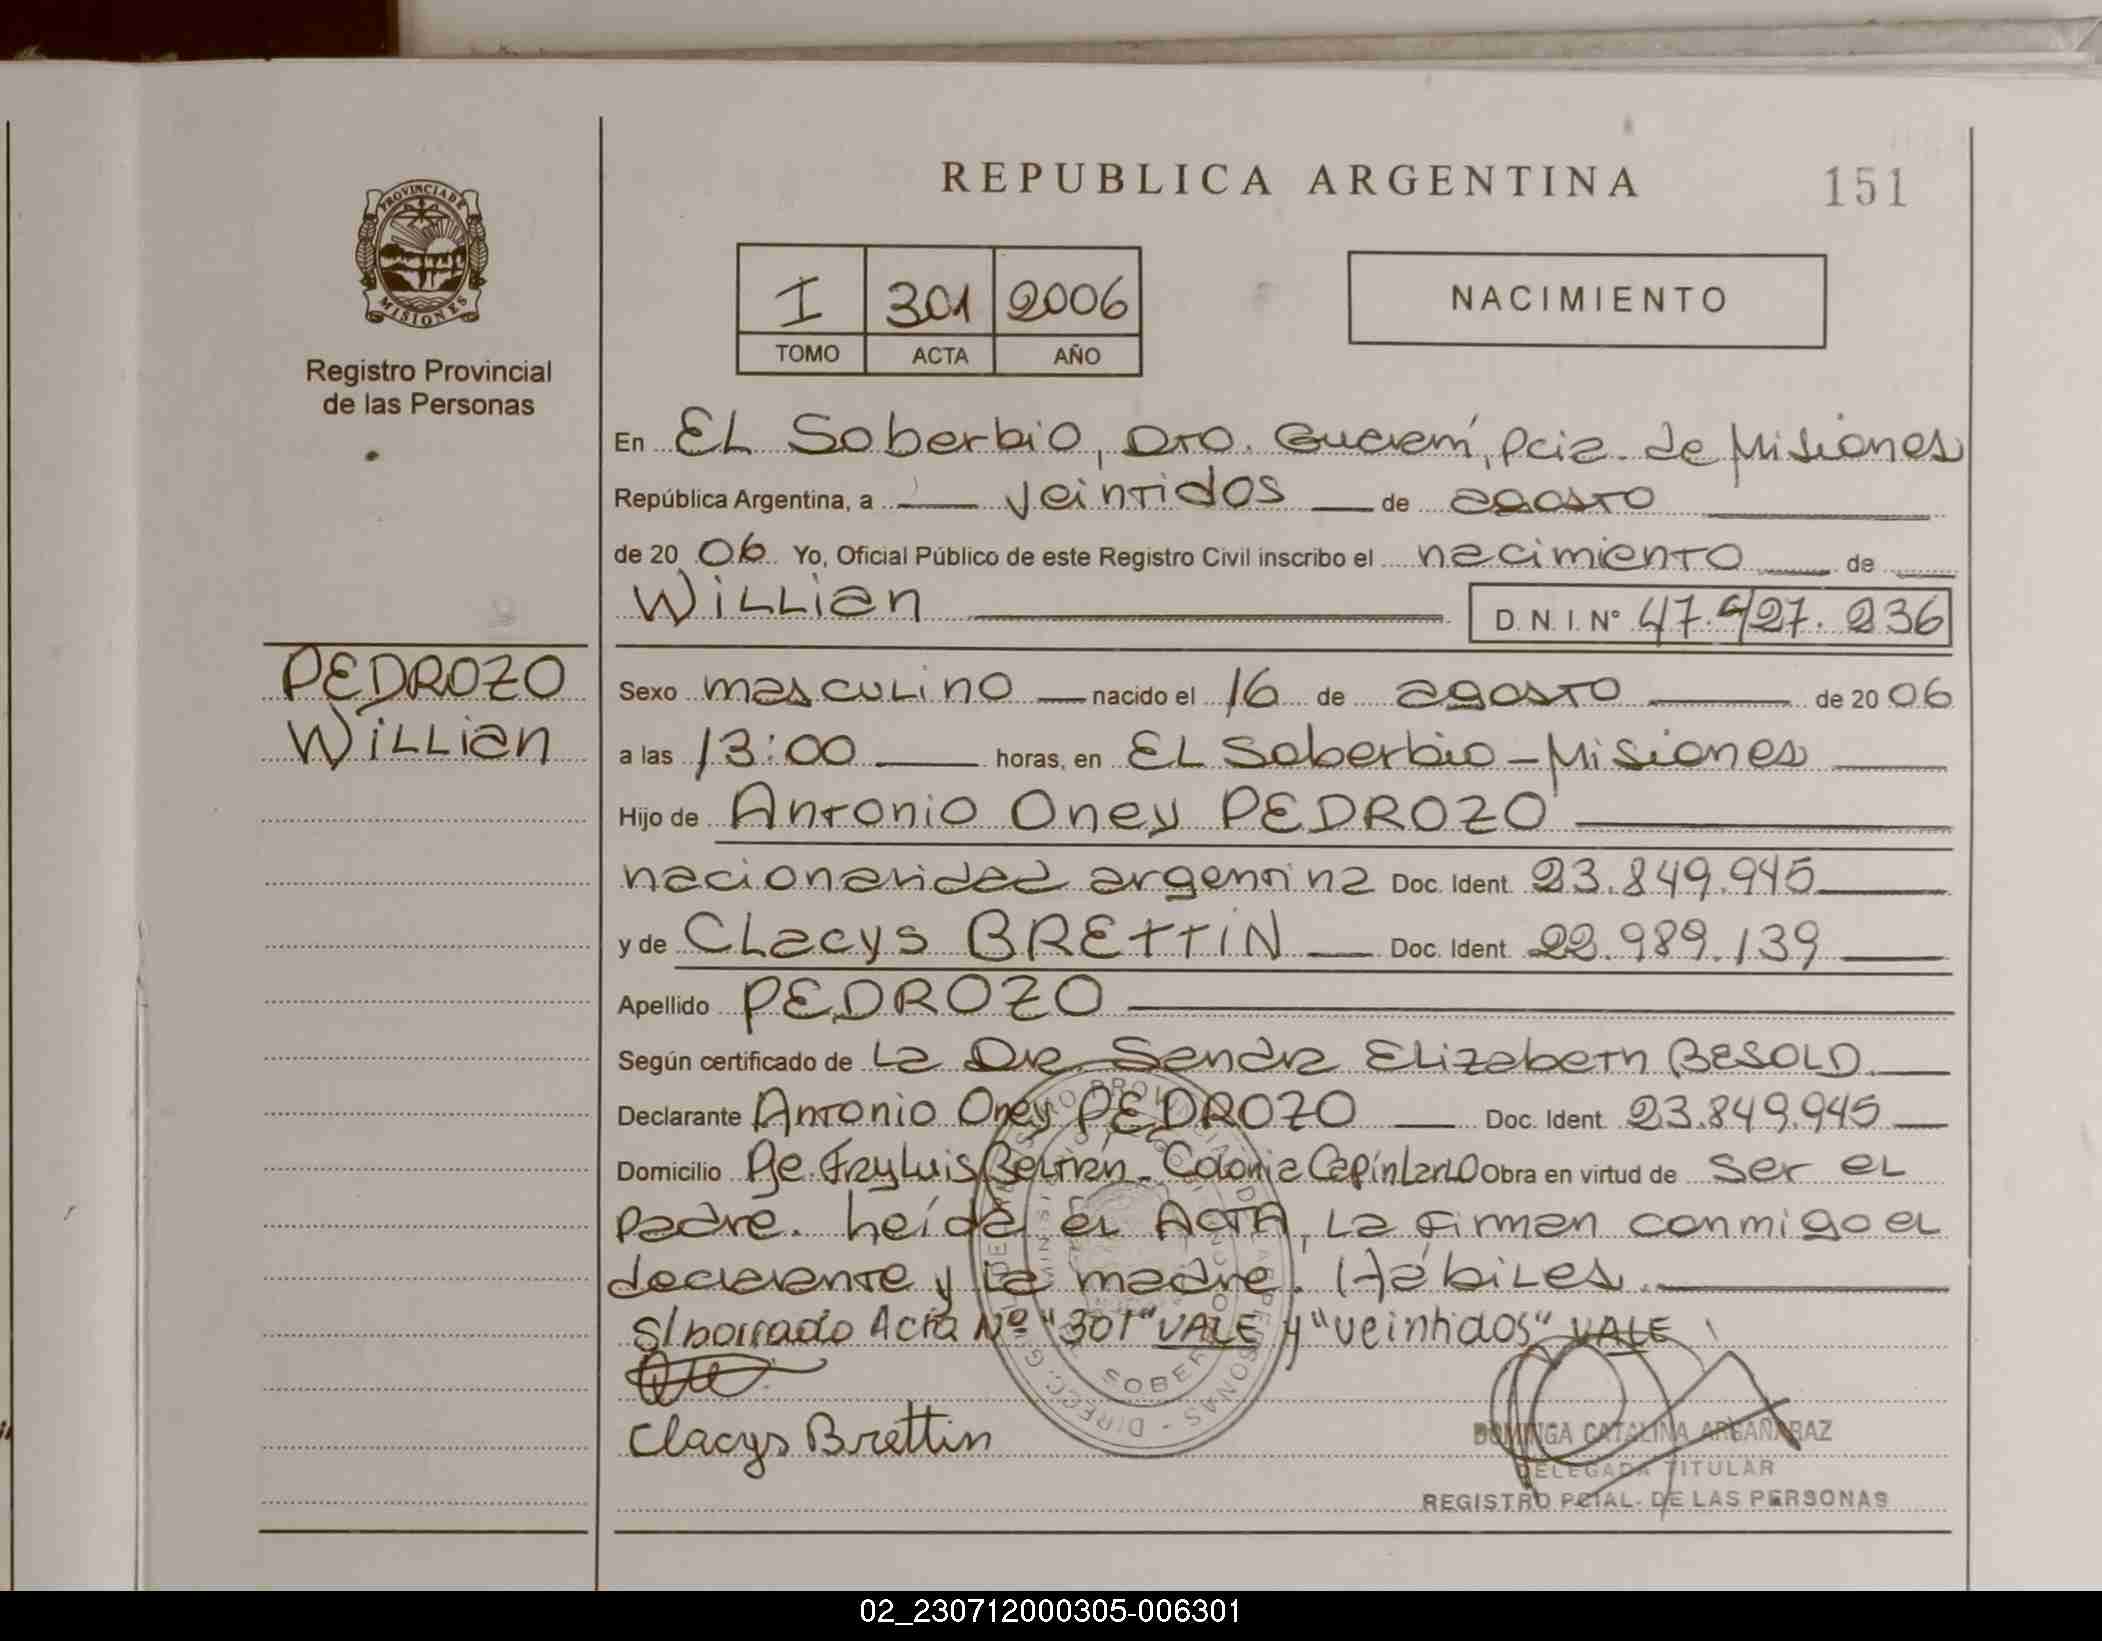 REPUBLICA ARGENTINA
151
PROVINCIA DE
MISIONES
Registro Provincial
de las Personas
I 301 2006
TOMO ACTA AÑO
NACIMIENTO
En EL Soberbio, Dto. Guaraní, Pcia. de Misiones
República Argentina, a veintidos de agosto
de 20 06 Yo, Oficial Público de este Registro Civil inscribo el nacimiento de
Willian
D. N. I. N° 47.427.236
PEDROZO
Willian
Sexo masculino nacido el 16 de agosto de 20 06
a las 13:00 horas, en EL Soberbio - Misiones
Hijo de Antonio Oney PEDROZO
nacionalidad argentina Doc. Ident. 23.849.945
y de Clacys BRETTIN Doc. Ident. 22.989.139
Apellido PEDROZO
Según certificado de La Dra. Sandra Elizabeth BESOLD
Declarante Antonio Oney PEDROZO Doc. Ident. 23.849.945
Domicilio Fray Luis Beltrán - Colonia Obra en virtud de ser el
padre. Leída el ACTA, la firman conmigo el
declarante y la madre. Hábiles.
S/borrado Acta Nº "301" VALE y "veintidos" VALE
Clacys Brettin
DOMINGA CATALINA ARGAÑARAZ
DELEGADA TITULAR
REGISTRO PCIAL. DE LAS PERSONAS
02_230712000305-006301